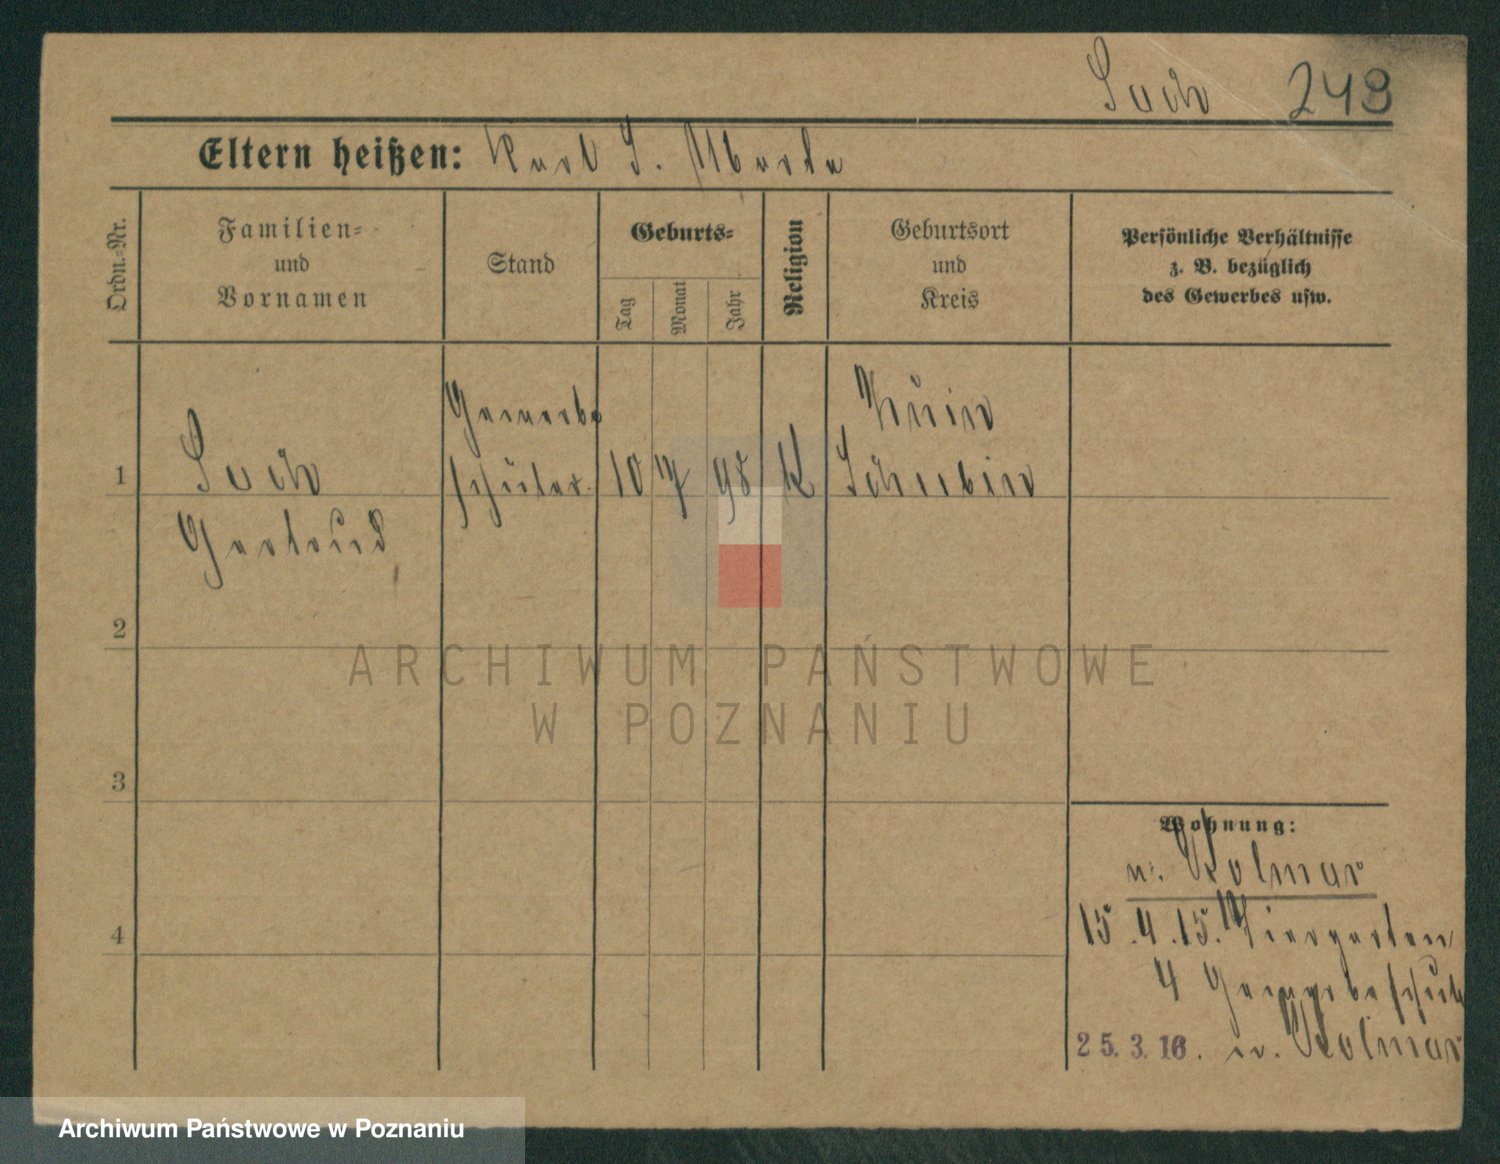 Sach 249
Eltern heißen: Karl S. Martha
Ordn.-Nr.
Familien- und Vornamen
Stand
Geburts-
Tag
Monat
Jahr
Religion
Geburtsort und Kreis
Persönliche Verhältnisse
z. B. bezüglich
des Gewerbes usw.
Gewerbe
Exin
1 Sach schüler. 10 7 98 K Schubin
Gertrud
2
3
4
Wohnung:
n. Kolmar
15.4.15. Tiergarten
4 Gewerbeschule
25.3.16. n. Kolmar
ARCHIWUM PAŃSTWOWE
W POZNANIU
Archiwum Państwowe w Poznaniu